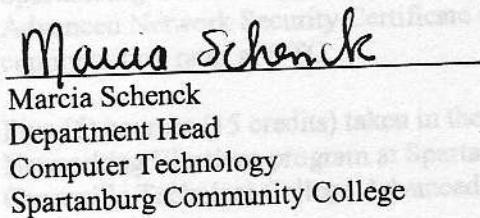 Marcia Schenck
Marcia Schenck
Department Head
Computer Technology
Spartanburg Community College